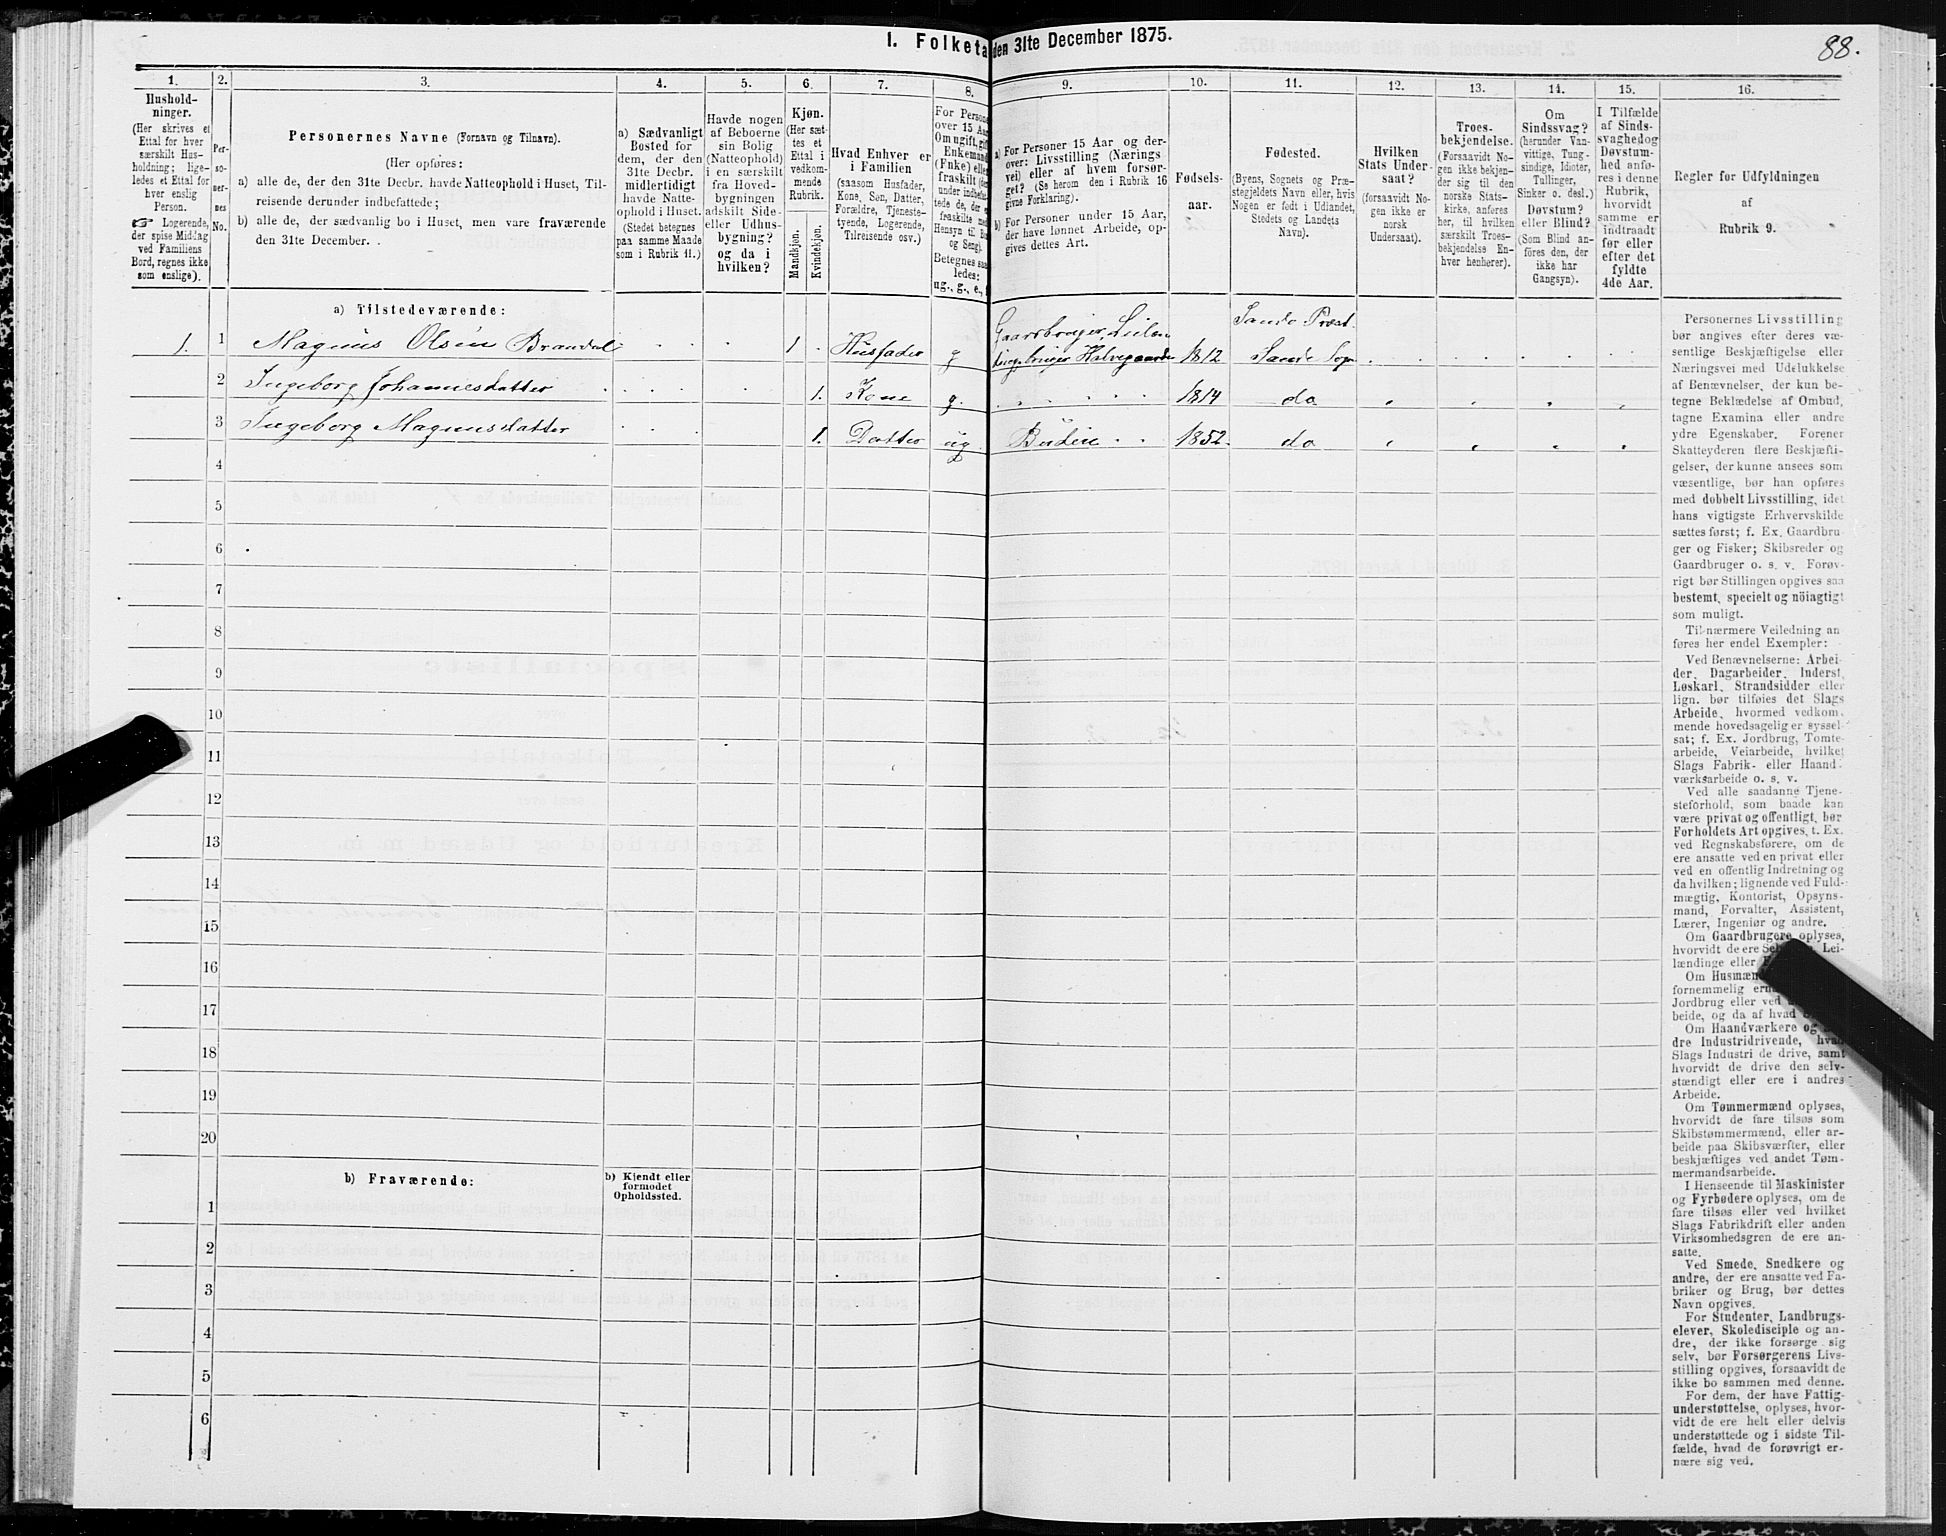 1. Folketa
den 31te December 1875.
88.
1.
Hushold-
ninger.
(Her skrives et
Ettal for hver
særskilt Hus-
holdning; lige-
ledes et Ettal for
hver enslig
Person.
☞ Logerende,
der spise Middag
ved Familiens
Bord, regnes ikke
som enslige).
2.
Per-
so-
ner-
nes
No.
3.
Personernes Navne (Fornavn og Tilnavn).
(Her opføres:
a) alle de, der den 31te Decbr. havde Natteophold i Huset, Til-
reisende derunder indbefattede;
b) alle de, der sædvanlig bo i Huset, men vare fraværende
den 31te December.
4.
a) Sædvanligt
Bosted for
dem, der den
31te Decbr.
midlertidigt
havde Natte-
ophold i Huset.
(Stedet betegnes
paa samme Maade
som i Rubrik 11.)
5.
Havde nogen
af Beboerne
sin Bolig
(Natteophold)
i en særskilt
fra Hoved-
bygningen
adskilt Side-
eller Udhus-
bygning?
og da i
hvilken?
6.
Kjøn.
(Her sæt-
tes et
Ettal i
vedkom-
mende
Rubrik.
Mandskjøn.
Kvindekjøn.
7.
Hvad Enhver er
i Familien
(saasom Husfader,
Kone, Søn, Datter,
Forældre, Tjeneste-
tyende, Logerende,
Tilreisende osv.)
8.
For Persone
over 15 Aar
Om ugift, gift
Enkemand
(Enke) eller
fraskilt
under indbefat-
tede de, der
fraskilte
Hensyn til Bo
og Seng).
Betegnes saa-
ledes:
ug., g., e.,
9.
a) For Personer 15 Aar og der-
over: Livsstilling (Nærings
vei) eller af hvem forsør-
get? (Se herom den i Rubrik 16
givne Forklaring).
b) For Personer under 15 Aar,
der have lønnet Arbeide, op-
gives dettes Art.
10.
Fødsels-
aar.
11.
Fødested.
(Byens, Sognets og Præ-
stegjeldets Navn eller, hvis
Nogen er født i Udlandet,
Stedets og Landets
Navn).
12.
Hvilken
Stats Under-
saat?
(forsaavidt No-
gen ikke er
norsk
Undersaat).
13.
Troes-
bekjendelse.
(Forsaavidt No-
gen ikke bekjen-
der sig til den
norske Stats-
kirke, anføres
her, til hvilken
særskilt Troes-
bekjendelse En-
hver henhører).
14.
Om
Sindssvag?
(herunder Van-
vittige, Tung-
sindige, Idioter,
Tullinger,
Sinker o. desl.)
Døvstum?
eller Blind?
(Som Blind an-
føres den, der
ikke har
Gangsyn).
15.
I Tilfælde
af Sinds-
svaghed og
Døvstum-
hed anfø-
res i denne
Rubrik,
hvorvidt
samme er
indtraadt
før eller
efter det
fyldte
4de Aar.
16.
Regler for Udfyldningen
af
Rubrik 9.
a) Tilstedeværende:
1. 1 Magnus Olsen Brandal 1 Husfader g Gaardbruger, Leilen 1812 Sande Præst.
bruger Halvegaarden Sande Sogn
2 Ingeborg Johannesdatter 1. Kone g. 1814 do
3 Ingeborg Magnusdatter 1. Datter ug Budeie 1852. do
4
5
6
7
8
9
10
11
12
13
14
15
16
17
18
19
20
b) Fraværende:
b) Kjendt eller
formodet
Opholdssted.
1
2
3
4
5
6
Personernes Livsstilling
bør angives efter deres væ-
sentlige Beskjæftigelse eller
Næringsvei med Udelukkelse
af Benævnelser, der kun be-
tegne Beklædelse af Ombud,
tagne Examina eller andre
ydre Egenskaber. Forener
Skatteyderen flere Beskjæfti-
gelser, der kunne ansees som
væsentlige, bør han opføres
med dobbelt Livsstilling, idet
hans vigtigste Erhvervskilde
sættes først; f. Ex. Gaardbru-
ger og Fisker; Skibsreder og
Gaardbruger o. s. v. Forøv-
rigt bør Stillingen opgives saa
bestemt, specielt og nöiagtigt
som muligt.
Til nærmere Veiledning an
føres her endel Exempler:
Ved Benævnelserne: Arbei-
der, Dagarbeider, Inderst,
Løskarl, Strandsidder eller
lign. bør tilføies det Slags
Arbeide, hvormed vedkom-
mende hovedsagelig er syssel-
sat; f. Ex. Jordbrug, Tomte-
arbeide, Veiarbeide, hvilket
Slags Fabrik- eller Haand-
værksarbeide o. s. v.
Ved alle saadanne Tjene-
steforhold, som baade kan
være privat og offentligt, bør
Forholdets Art opgives, t. Ex.
ved Regnskabsførere, om de
ere ansatte ved en privat eller
ved en offentlig Indretning og
da hvilken; lignende ved Fuld-
mægtig, Kontorist, Opsyns-
mand, Forvalter, Assistent,
Lærer, Ingeniør og andre.
Om Gaardbrugere oplyses,
hvorvidt de ere Lei-
lændinge eller
Om Husmæn
fornemmelig ern
Jordbrug eller ved
beide, og da af hvad
Om Haandværkere og
dre Industridrivende, hvad
Slags Industri de drive, samt
hvorvidt de drive den selv-
stændigt eller ere i andres
Arbeide.
Om Tømmermænd oplyses,
hvorvidt de fare tilsøs som
Skibstømmermænd, eller ar-
beide paa Skibsværfter, eller
beskjæftiges ved andet Tøm-
mermandsarbeide.
I Henseende til Maskinister
og Fyrbødere oplyses, om de
fare tilsøs eller ved hvilket
Slags Fabrikdrift eller anden
Virksomhedsgren de ere an-
satte.
Ved Smede, Snedkere og
andre, der ere ansatte ved Fa-
briker og Brug, bør dettes
Navn opgives.
For Studenter, Landbrugs-
elever, Skoledisciple og an-
dre, der ikke forsørge sig
selv, bør Forsørgerens Livs-
stilling opgives, forsaavidt de
ikke bo sammen med denne.
For dem, der have Fattig-
understøttelse, oplyses, hvor-
vidt de ere helt eller delvis
understøttede og i sidste Til-
fælde, hvad de forøvrigt er-
nære sig ved.